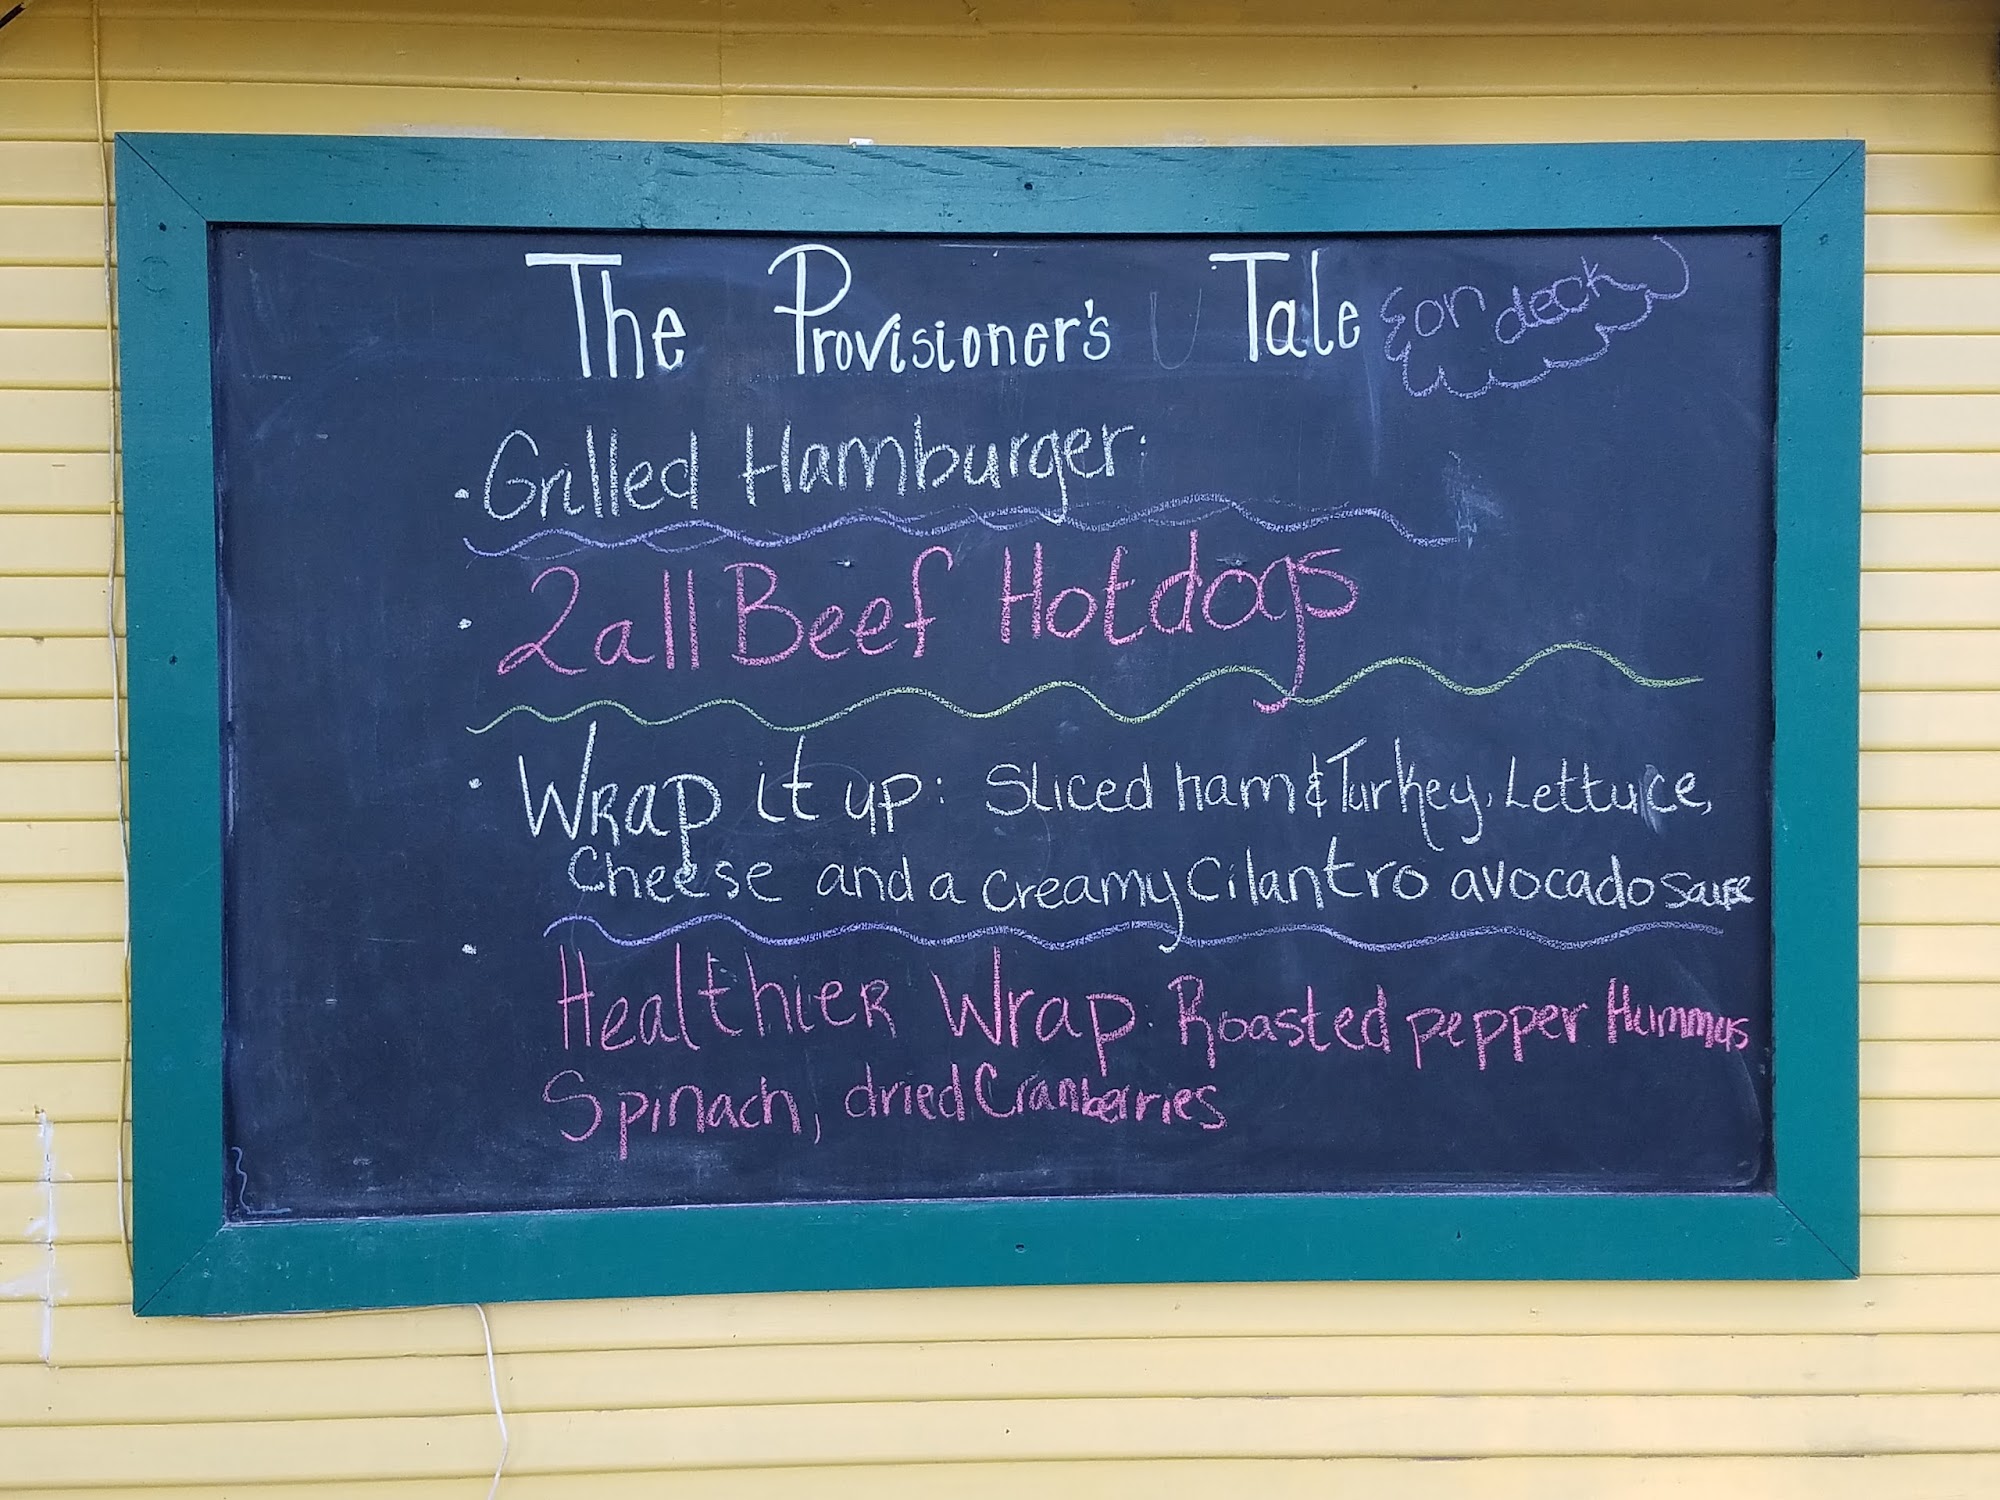 The Provisioner's Tale on deck
· Grilled Hamburger:
· 2 all Beef Hotdogs
· Wrap it up: Sliced ham & Turkey, Lettuce,
Cheese and a creamy Cilantro avocado sauce
· Healthier Wrap: Roasted pepper Hummus
Spinach, dried Cranberries